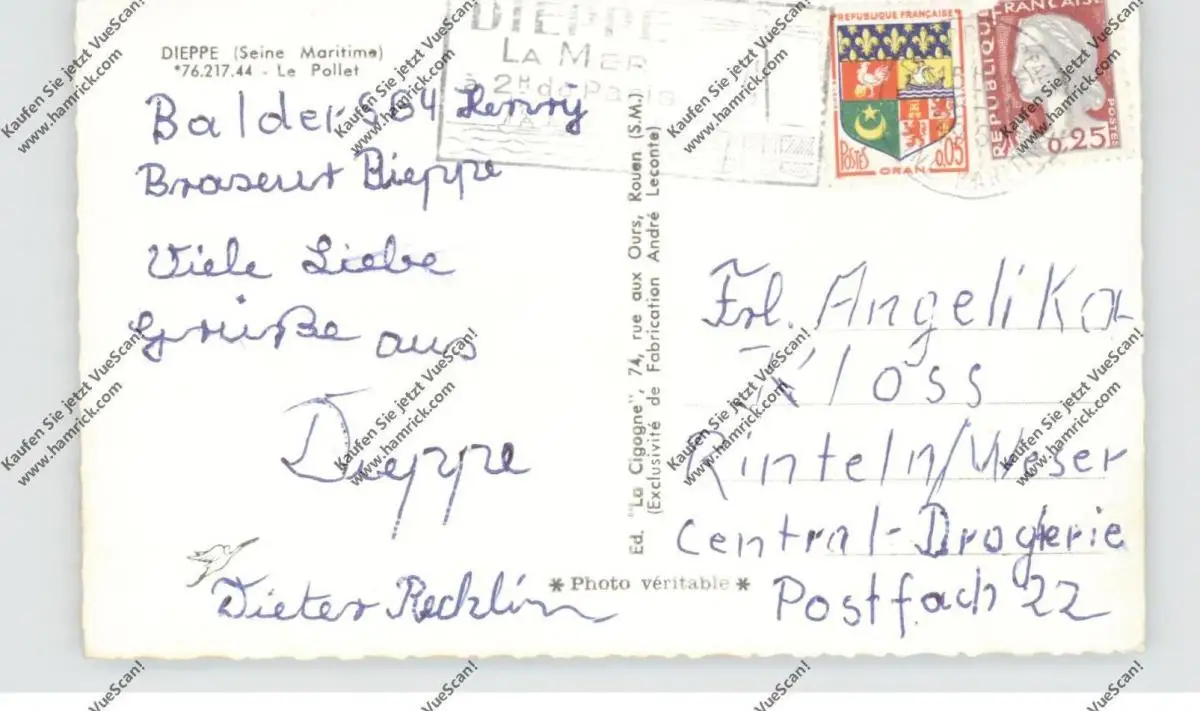 DIEPPE (Seine Maritime)
*76.217.44 - Le Pollet
DIEPPE
LA MER
à 2H de Paris
REPUBLIQUE FRANÇAISE
POSTES
0,05
ORAN
REPUBLIQUE FRANÇAISE
POSTES
0,25
Viele Liebe
Grüße aus
Dieppe
Dieter
Ed. "La Cigogne", 74, rue aux Ours, Rouen (S.M.)
(Exclusivité de Fabrication André Leconte)
* Photo véritable *
Frl. Angelika
Kloss
Rinteln/Weser
Central-Drogerie
Postfach 22
Kaufen Sie jetzt VueScan!
www.hamrick.com